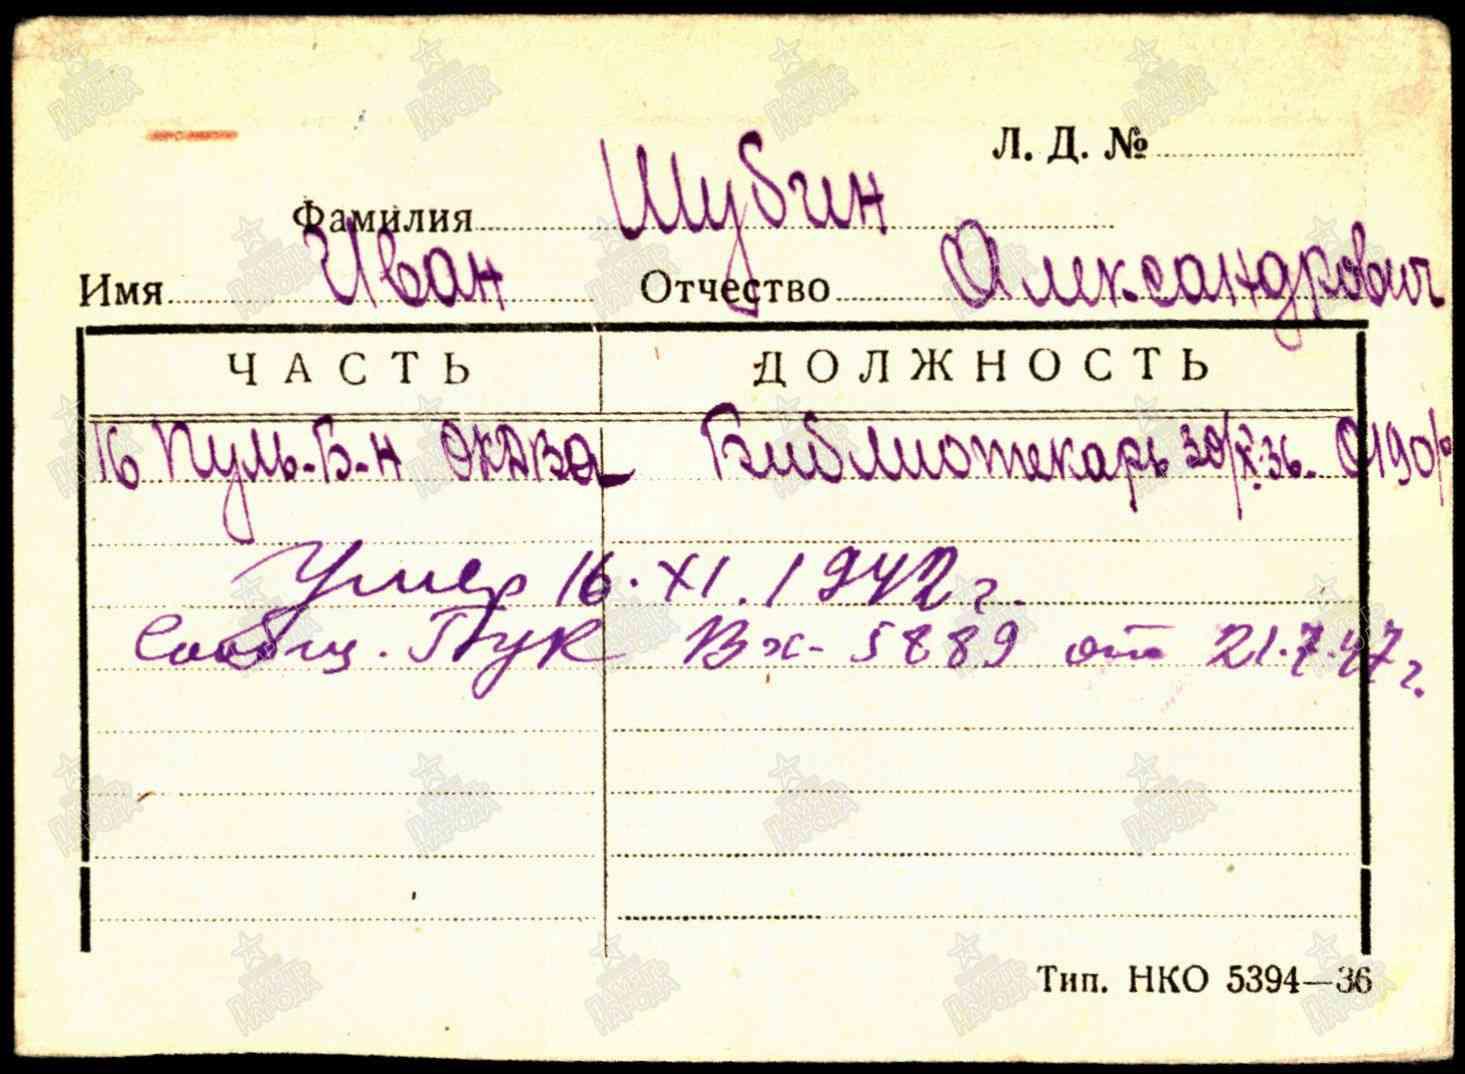 Л. Д. №
Фамилия Шубин
Имя Иван Отчество Александрович
ЧАСТЬ ДОЛЖНОСТЬ
16 Пуль-Б-н ОКДВА Библиотекарь 30/X.36. 0190/р
Умер 16.XI.1942 г.
Сообщ. ПУК Вх- 5889 от 21.7.47 г.
Тип. НКО 5394—36
ПАМЯТЬ НАРОДА